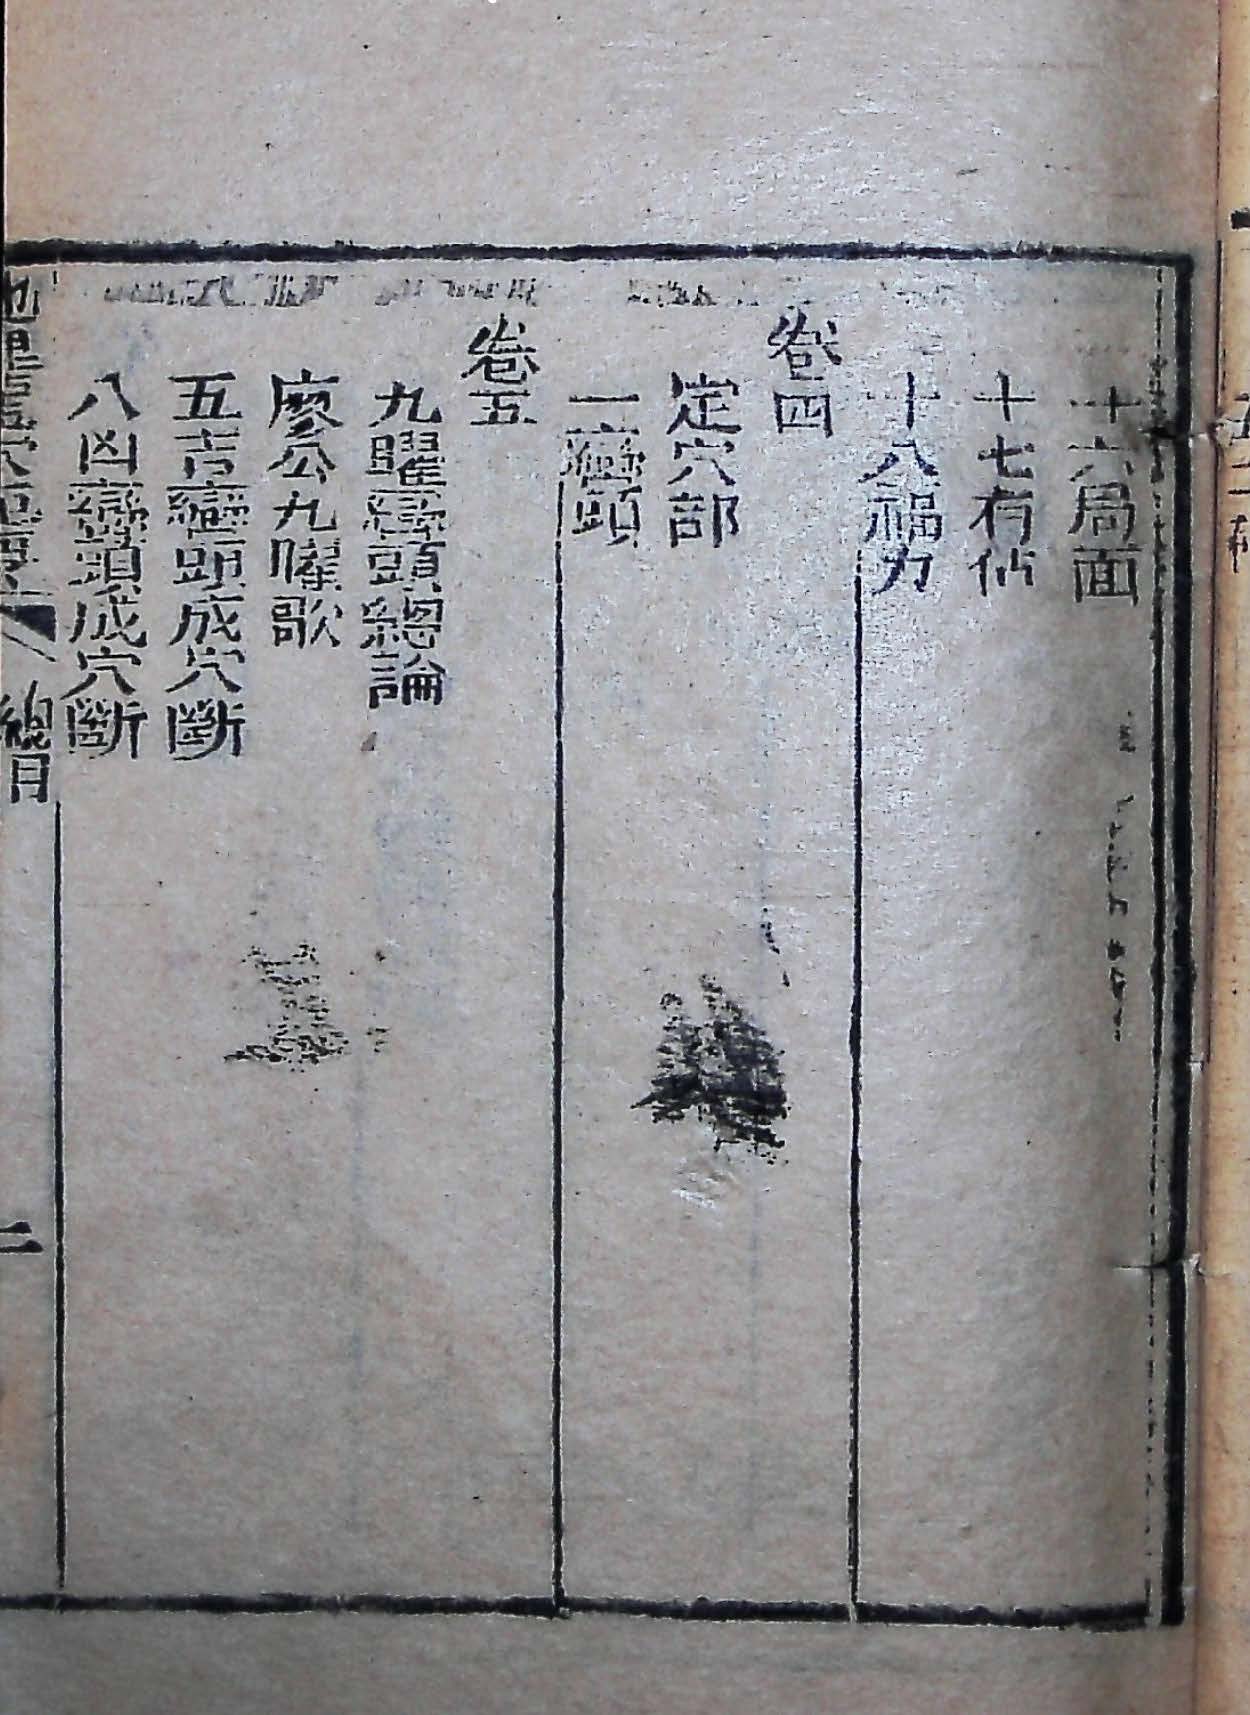 十六局面
十七有佔
十八福力
卷四
定穴部
一巒頭
卷五
九曜巒頭總論
廖公九曜歌
五吉巒頭成穴斷
八凶巒頭成穴斷
總目
二